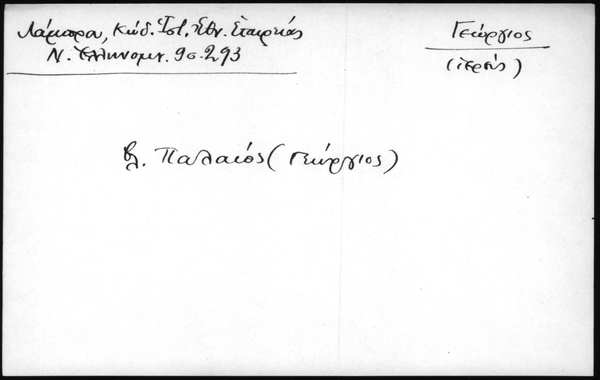 Λάμπρου, Κώδ. Ἱστ. Ἐθν. Ἑταιρείας
Ν. Ἑλληνομν. 9σ. 293
Γεώργιος
(ἱερεύς)
βλ. Παλαιός (Γεώργιος)